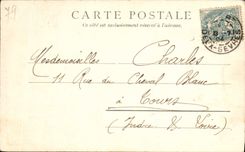 79
CARTE POSTALE
Ce côté est exclusivement réservé à l'adresse.
DEUX-SÈVRES
Mesdemoiselles Charles
11 Rue du Cheval Blanc
à Tours
(Indre & Loire)